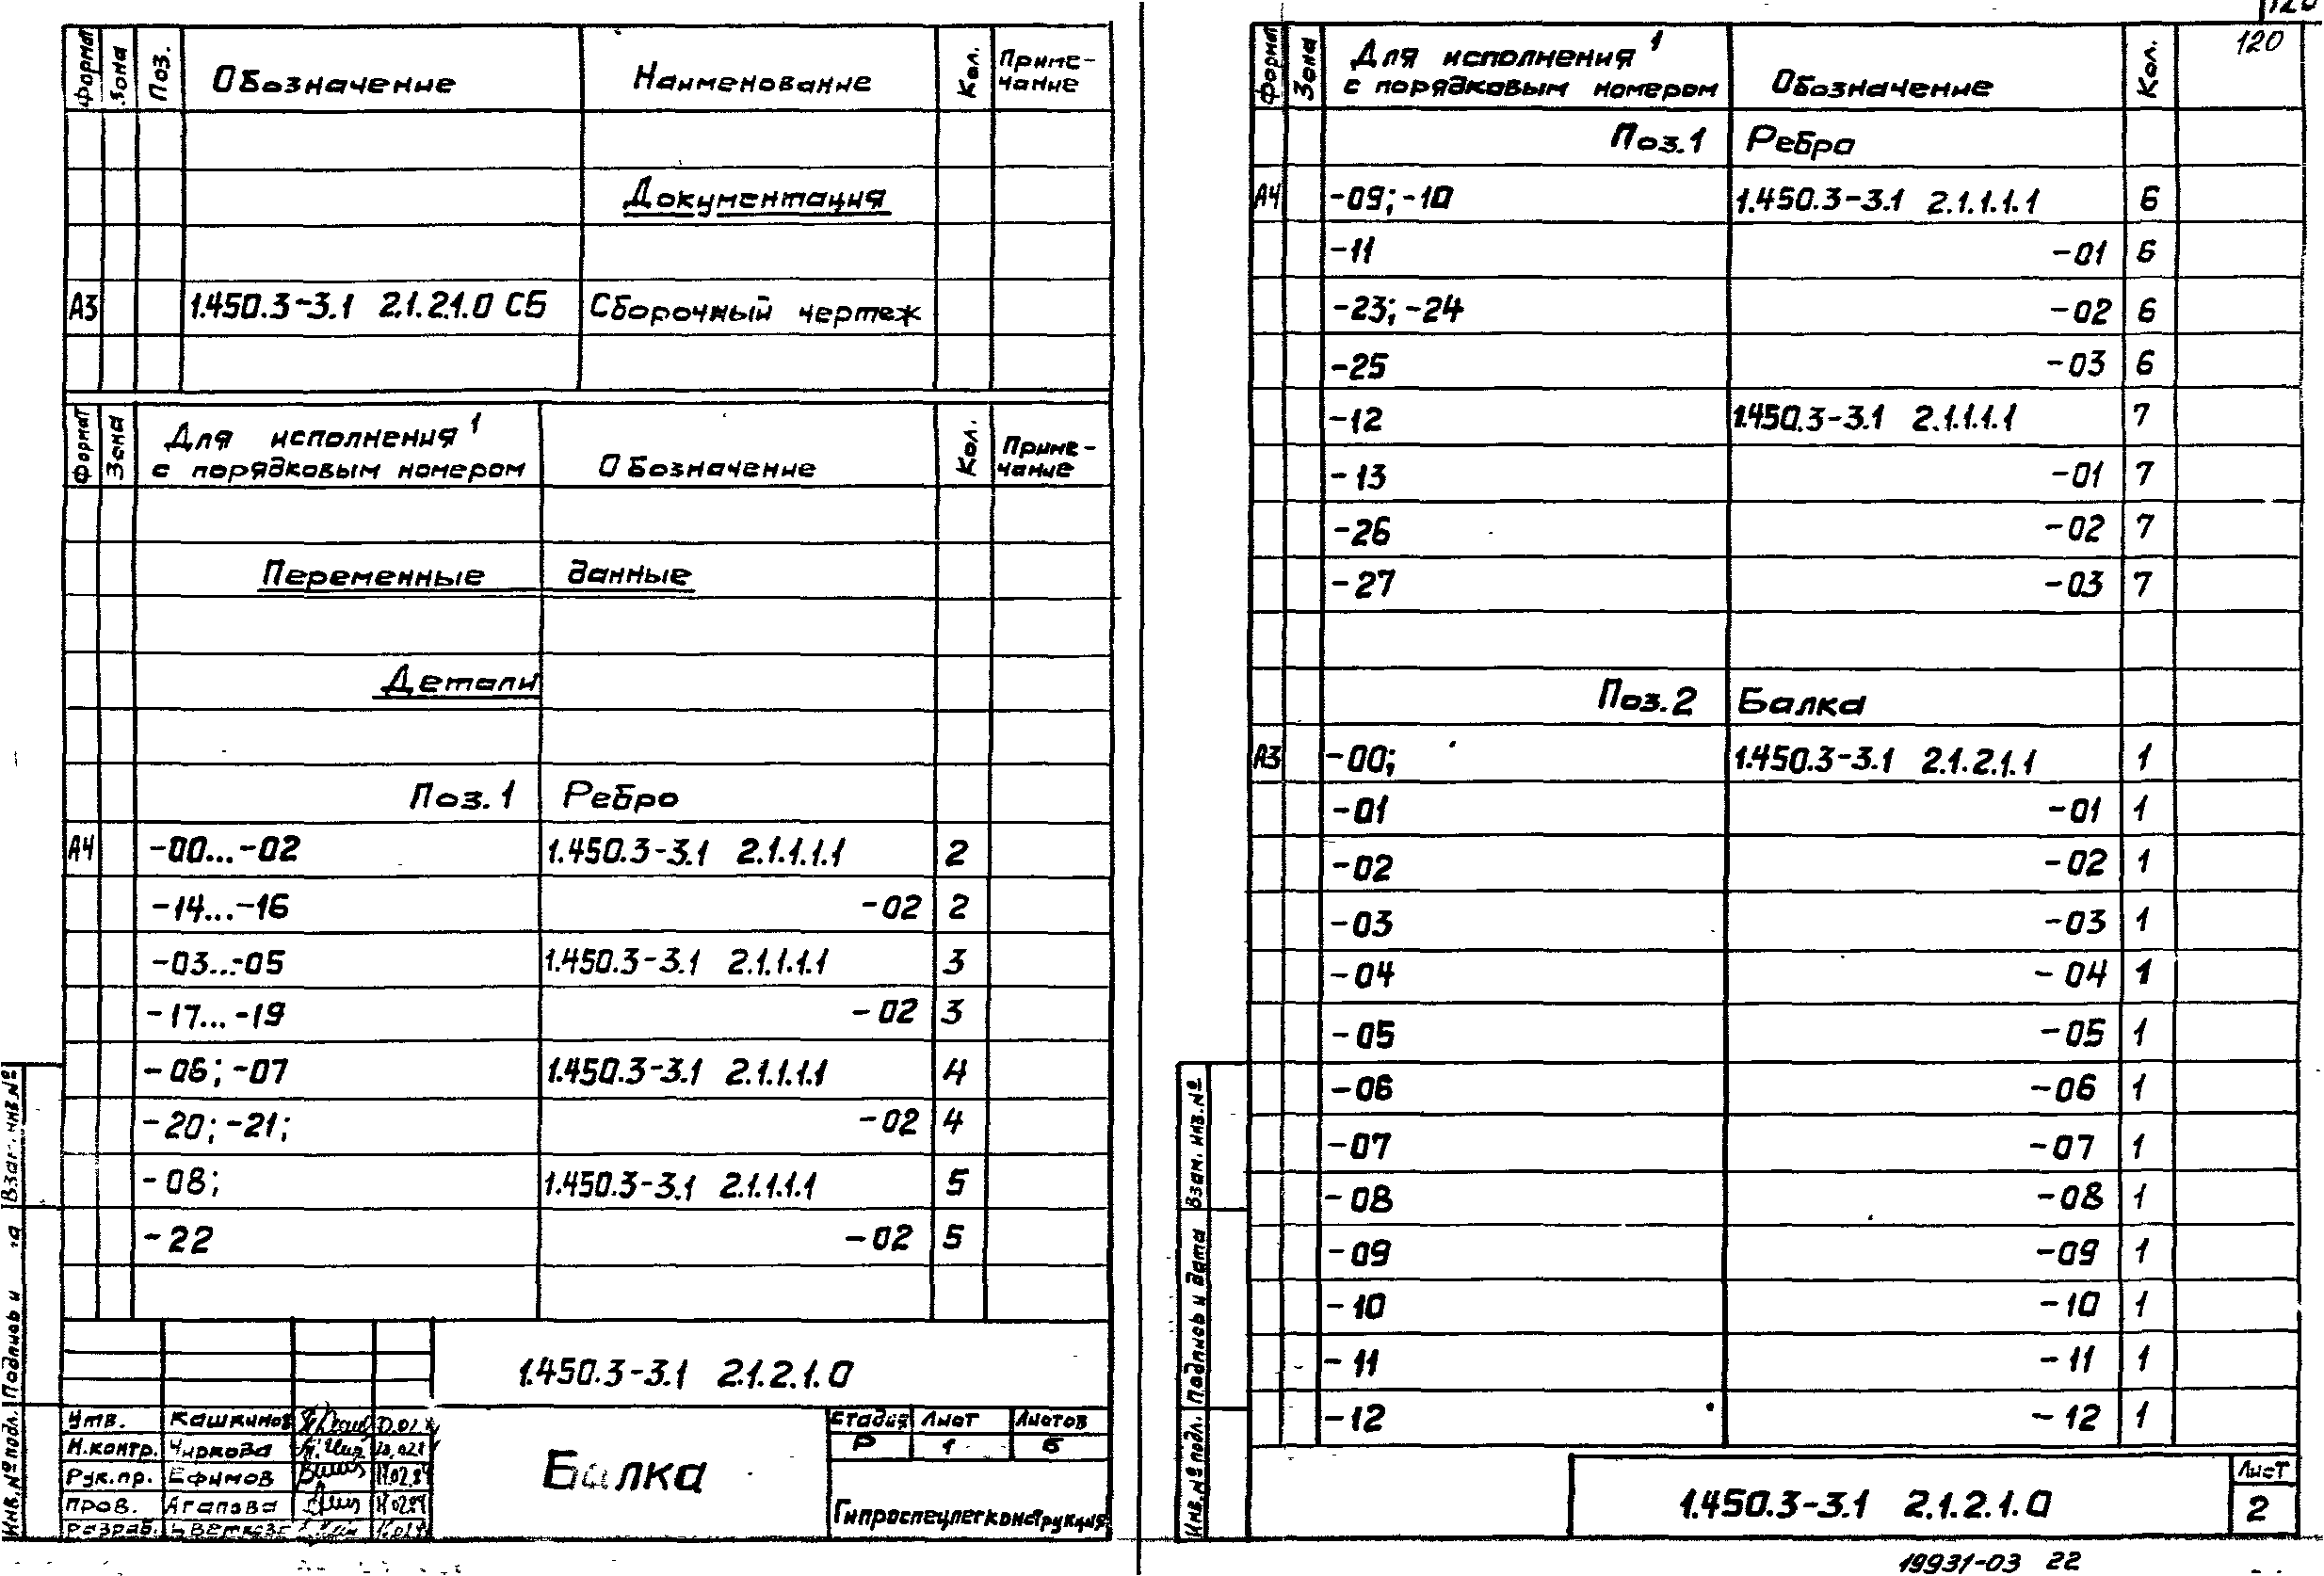 Формат Зона Поз. Обозначение Наименование Кол. Приме-
чание
Документация
А3 1.450.3-3.1 2.1.2.1.0 СБ Сборочный чертеж
Формат Зона Для исполнения 1 Обозначение Кол. Приме-
с порядковым номером чание
Переменные данные
Детали
Поз. 1 Ребро
А4 -00...-02 1.450.3-3.1 2.1.1.1.1 2
-14...-16 -02 2
-03...-05 1.450.3-3.1 2.1.1.1.1 3
-17...-19 -02 3
-06; -07 1.450.3-3.1 2.1.1.1.1 4
-20; -21; -02 4
-08; 1.450.3-3.1 2.1.1.1.1 5
-22 -02 5
1.450.3-3.1 2.1.2.1.0
Утв. Кашкинов
Н.контр. Чиркова
Рук.пр. Ефимов 02.84
Пров. Агапова 02.84
Разраб.
Балка
Стадия Лист Листов
Р 1 5
Гипроспецлегконструкция
Инв.№ подл. Подпись и Взам. инв.№
120
120
Формат Зона Для исполнения 1 Обозначение Кол.
с порядковым номером
Поз.1 Ребра
А4 -09; -10 1.450.3-3.1 2.1.1.1.1 6
-11 -01 6
-23; -24 -02 6
-25 -03 6
-12 1.450.3-3.1 2.1.1.1.1 7
-13 -01 7
-26 -02 7
-27 -03 7
Поз.2 Балка
А3 -00; 1.450.3-3.1 2.1.2.1.1 1
-01 -01 1
-02 -02 1
-03 -03 1
-04 -04 1
-05 -05 1
-06 -06 1
-07 -07 1
-08 -08 1
-09 -09 1
-10 -10 1
-11 -11 1
-12 -12 1
Инв.№ подл. Подпись и дата Взам. инв.№
1.450.3-3.1 2.1.2.1.0
Лист
2
19931-03 22